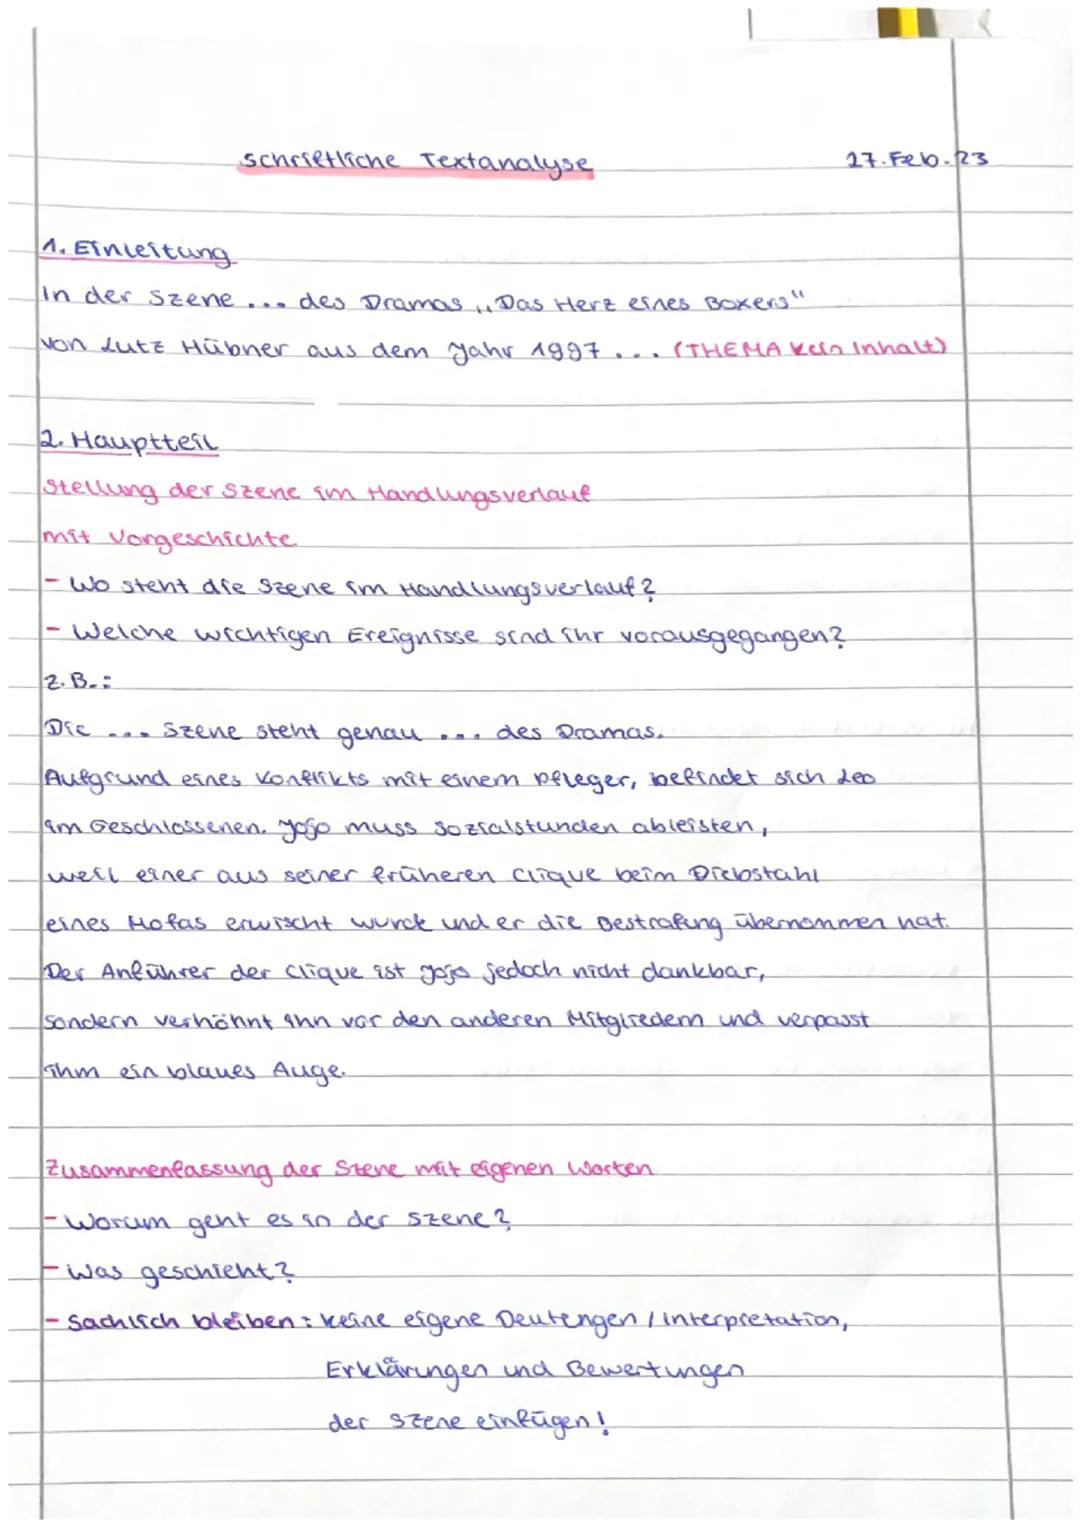 schriftliche Textanalyse 27.Feb.23
1. Einleitung
In der Szene ... des Dramas „Das Herz eines Boxers"
von Lutz Hübner aus dem Jahr 1997 ... (THEMA kein Inhalt)
2. Hauptteil
Stellung der Szene im Handlungsverlauf
mit Vorgeschichte
- Wo steht die Szene im Handlungsverlauf?
- Welche wichtigen Ereignisse sind ihr vorausgegangen?
z.B.:
Die ... Szene steht genau ... des Dramas.
Aufgrund eines Konflikts mit einem Pfleger, befindet sich Leo
im Geschlossenen. Jojo muss Sozialstunden ableisten,
weil einer aus seiner früheren Clique beim Diebstahl
eines Mofas erwischt wurde und er die Bestrafung übernommen hat.
Der Anführer der Clique ist Jojo jedoch nicht dankbar,
sondern verhöhnt ihn vor den anderen Mitgliedern und verpasst
ihm ein blaues Auge.
Zusammenfassung der Szene mit eigenen Worten
- Worum geht es in der Szene?
- Was geschieht?
- Sachlich bleiben: keine eigene Deutengen / Interpretation,
Erklärungen und Bewertungen
der Szene einfügen!